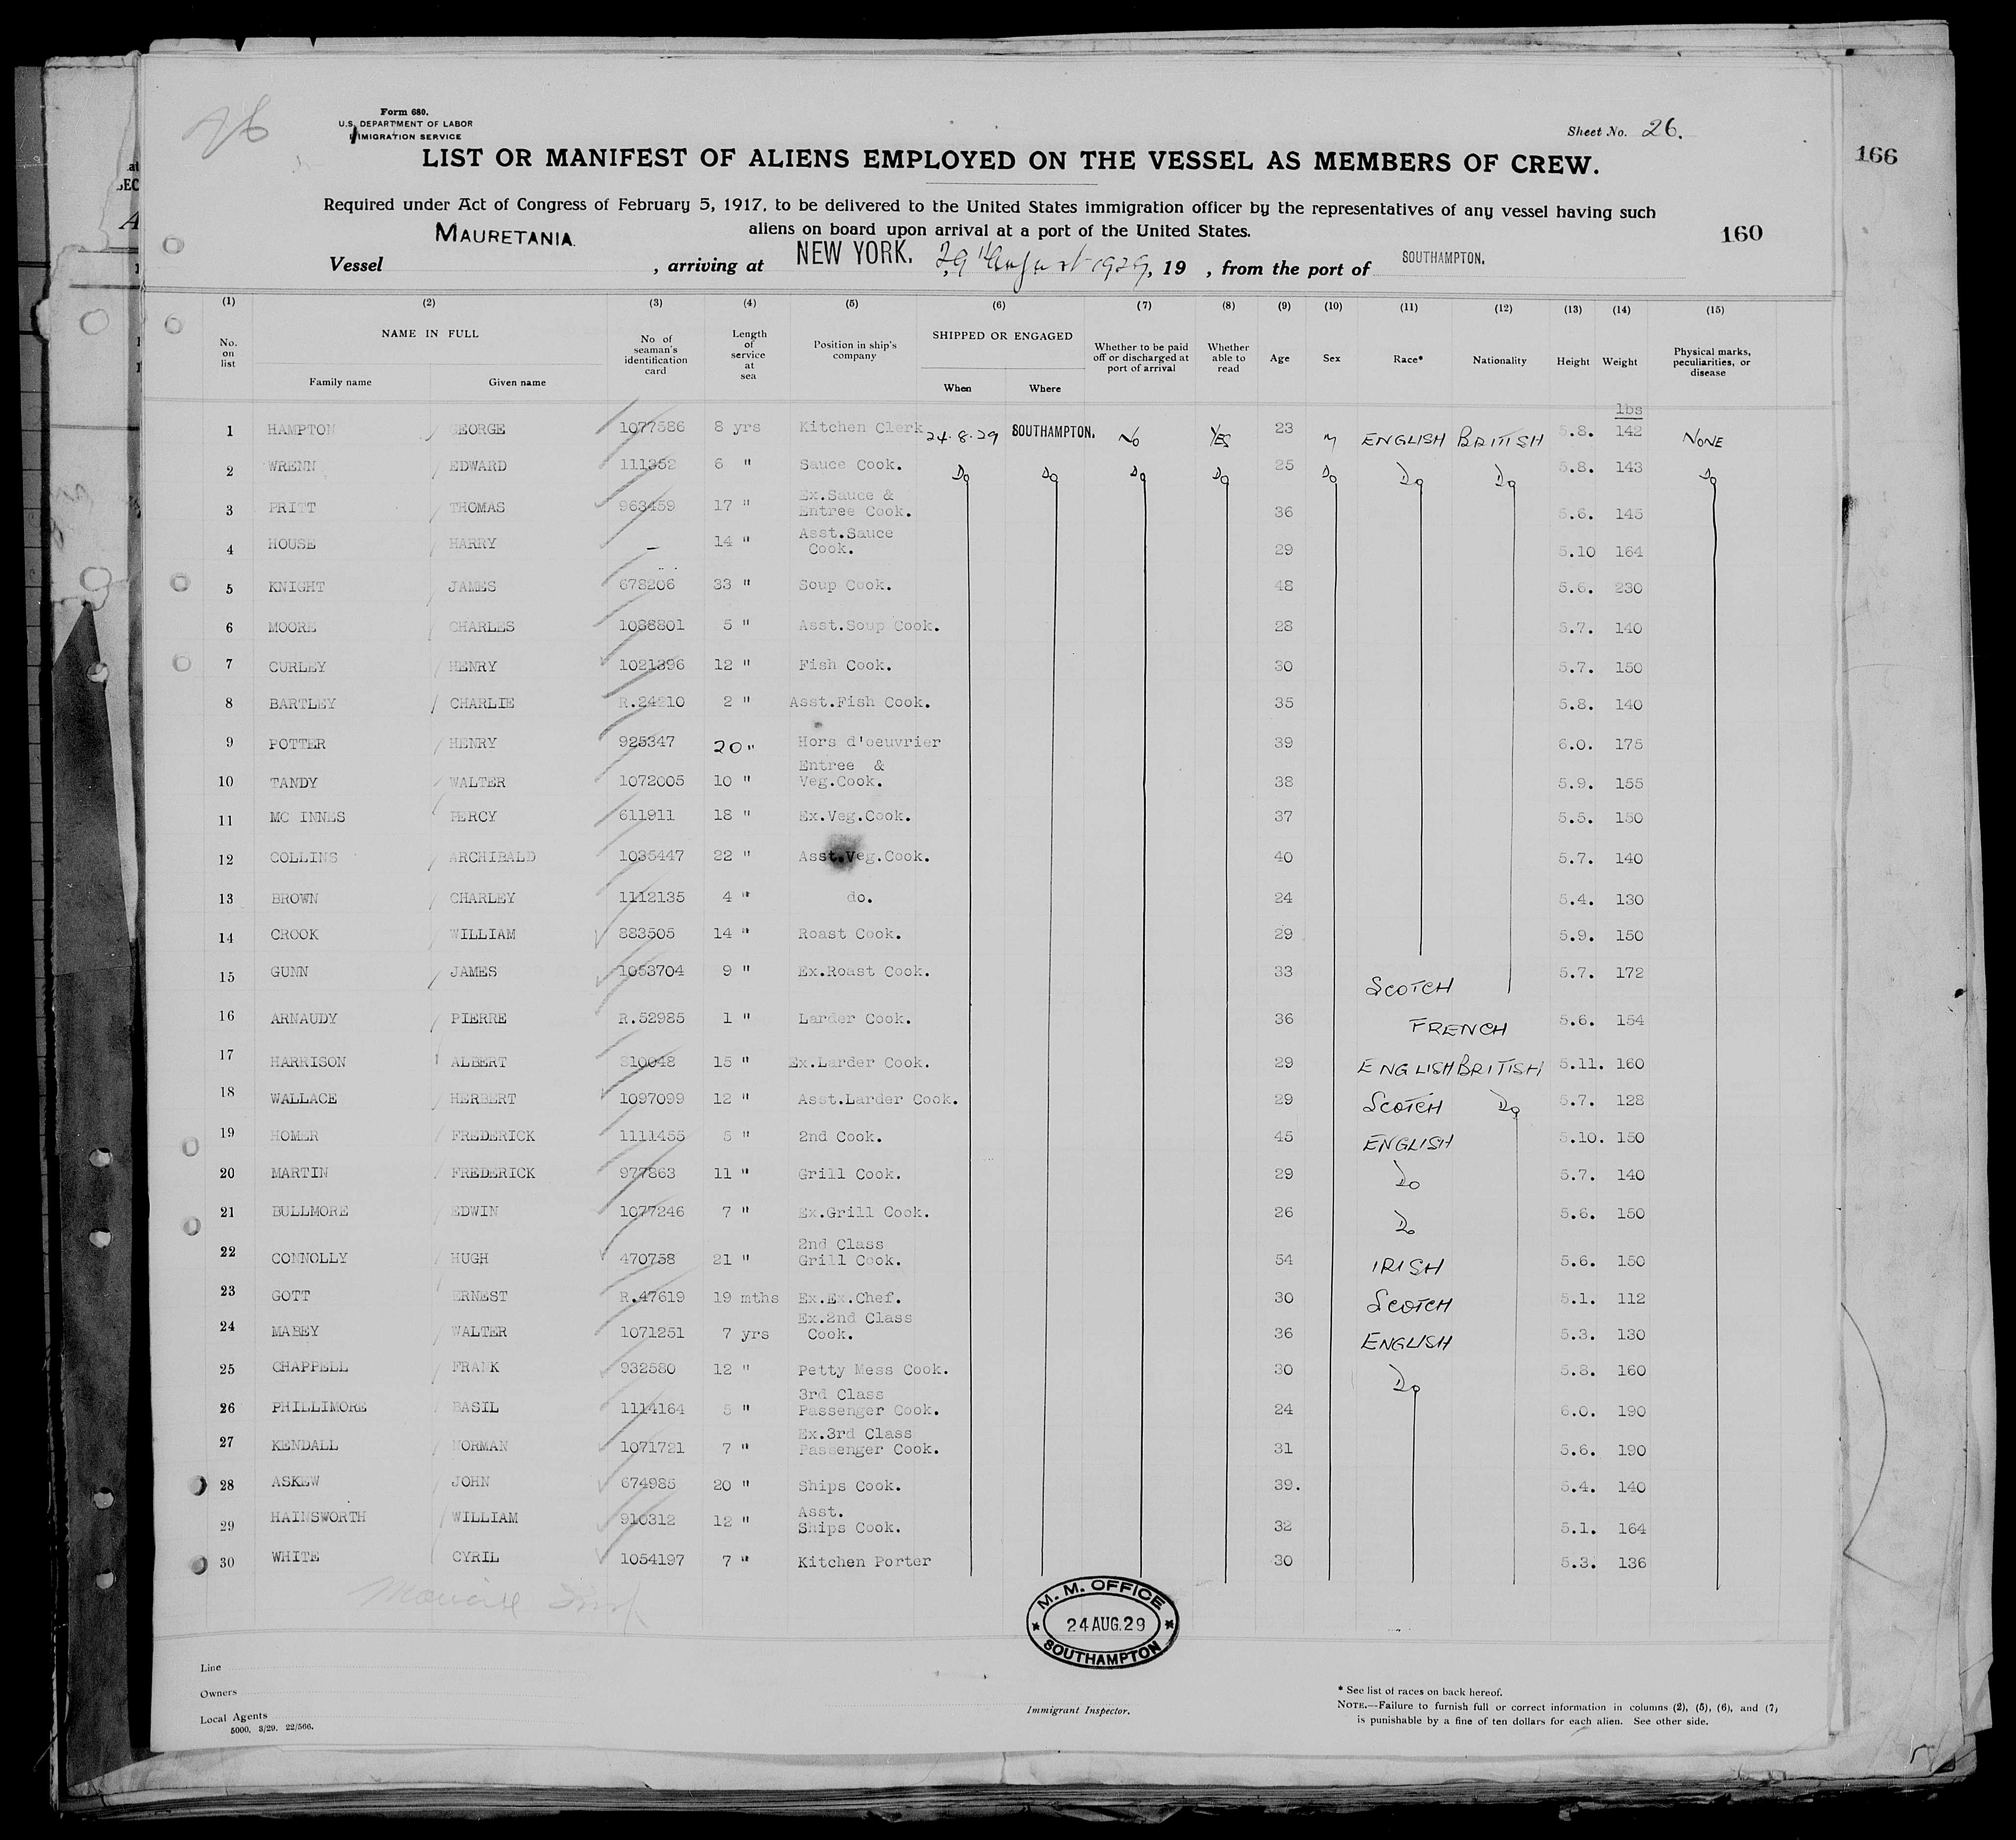 26
Form 680.
U.S. DEPARTMENT OF LABOR
IMMIGRATION SERVICE
Sheet No. 26.
166
LIST OR MANIFEST OF ALIENS EMPLOYED ON THE VESSEL AS MEMBERS OF CREW.
Required under Act of Congress of February 5, 1917, to be delivered to the United States immigration officer by the representatives of any vessel having such
aliens on board upon arrival at a port of the United States.
160
Vessel MAURETANIA , arriving at NEW YORK. 29th August 1929, 19 , from the port of SOUTHAMPTON.
(1) (2) (3) (4) (5) (6) (7) (8) (9) (10) (11) (12) (13) (14) (15)
No. on list NAME IN FULL Family name Given name No of seaman's identification card Length of service at sea Position in ship's company SHIPPED OR ENGAGED When Where Whether to be paid off or discharged at port of arrival Whether able to read Age Sex Race* Nationality Height Weight Physical marks, peculiarities, or disease
lbs
1 HAMPTON GEORGE 1077586 8 yrs Kitchen Clerk 24.8.29 SOUTHAMPTON. No YES 23 M ENGLISH BRITISH 5.8. 142 NONE
2 WRENN EDWARD 111352 6 " Sauce Cook. Do Do Do Do 25 Do Do Do 5.8. 143 Do
3 PRITT THOMAS 963459 17 " Ex.Sauce & Entree Cook. 36 5.6. 145
4 HOUSE HARRY — 14 " Asst.Sauce Cook. 29 5.10 164
5 KNIGHT JAMES 678206 33 " Soup Cook. 48 5.6. 230
6 MOORE CHARLES 1038801 5 " Asst.Soup Cook. 28 5.7. 140
7 CURLEY HENRY 1021396 12 " Fish Cook. 30 5.7. 150
8 BARTLEY CHARLIE R.24210 2 " Asst.Fish Cook. 35 5.8. 140
9 POTTER HENRY 925347 20 " Hors d'oeuvrier 39 6.0. 175
10 TANDY WALTER 1072005 10 " Entree & Veg.Cook. 38 5.9. 155
11 MC INNES PERCY 611911 18 " Ex.Veg.Cook. 37 5.5. 150
12 COLLINS ARCHIBALD 1035447 22 " Asst.Veg.Cook. 40 5.7. 140
13 BROWN CHARLEY 1112135 4 " do. 24 5.4. 130
14 CROOK WILLIAM 883505 14 " Roast Cook. 29 5.9. 150
15 GUNN JAMES 1053704 9 " Ex.Roast Cook. 33 SCOTCH 5.7. 172
16 ARNAUDY PIERRE R.52985 1 " Larder Cook. 36 FRENCH 5.6. 154
17 HARRISON ALBERT 810048 15 " Ex.Larder Cook. 29 ENGLISH BRITISH 5.11. 160
18 WALLACE HERBERT 1097099 12 " Asst.Larder Cook. 29 SCOTCH Do 5.7. 128
19 HOMER FREDERICK 1111455 5 " 2nd Cook. 45 ENGLISH 5.10. 150
20 MARTIN FREDERICK 977863 11 " Grill Cook. 29 Do 5.7. 140
21 BULLMORE EDWIN 1077246 7 " Ex.Grill Cook. 26 Do 5.6. 150
22 CONNOLLY HUGH 470758 21 " 2nd Class Grill Cook. 54 IRISH 5.6. 150
23 GOTT ERNEST R.47619 19 mths Ex.Ex.Chef. 30 SCOTCH 5.1. 112
24 MABEY WALTER 1071251 7 yrs Ex.2nd Class Cook. 36 ENGLISH 5.3. 130
25 CHAPPELL FRANK 932580 12 " Petty Mess Cook. 30 Do 5.8. 160
26 PHILLIMORE BASIL 1114164 5 " 3rd Class Passenger Cook. 24 6.0. 190
27 KENDALL NORMAN 1071721 7 " Ex.3rd Class Passenger Cook. 31 5.6. 190
28 ASKEW JOHN 674985 20 " Ships Cook. 39. 5.4. 140
29 HAINSWORTH WILLIAM 910312 12 " Asst. Ships Cook. 32 5.1. 164
30 WHITE CYRIL 1054197 7 " Kitchen Porter 30 5.3. 136
M. M. OFFICE
24 AUG. 29
SOUTHAMPTON
Line
Owners
Local Agents
5000. 3/29. 22/566.
Immigrant Inspector.
* See list of races on back hereof.
NOTE.—Failure to furnish full or correct information in columns (2), (5), (6), and (7)
is punishable by a fine of ten dollars for each alien. See other side.